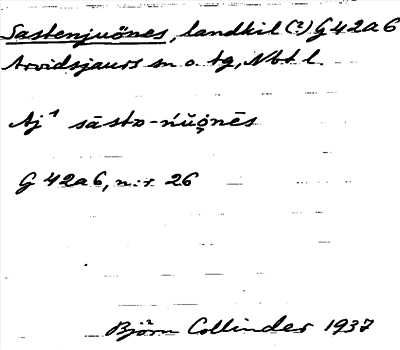 Sastenjuönes, landkil (?) G 42a6
Arvidsjaurs sn o. tg, Nbt l.
Aj¹ sāstɒ-ńŭo̬nēs
G 42a6, n:r 26
Björn Collinder 1937